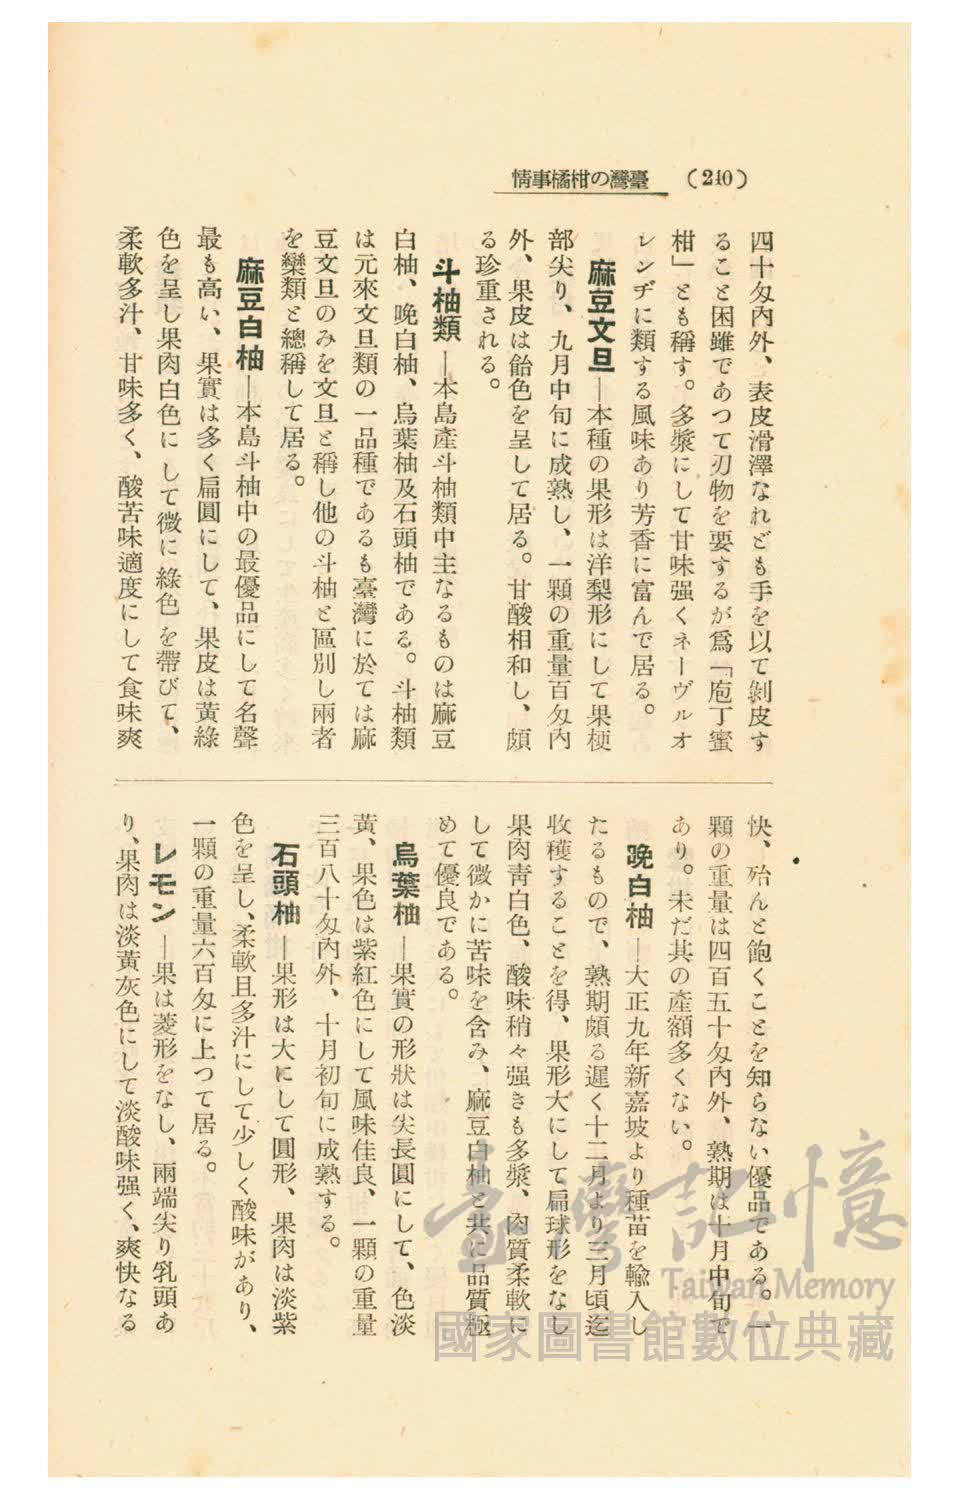 臺灣の柑橘事情 (240)
四十匁內外、表皮滑澤なれども手を以て剝皮す
ること困難であつて刃物を要するが爲「庖丁蜜
柑」とも稱す。多漿にして甘味强くネーヴルオ
レンヂに類する風味あり芳香に富んで居る。
麻豆文旦―本種の果形は洋梨形にして果梗
部尖り、九月中旬に成熟し、一顆の重量百匁內
外、果皮は飴色を呈して居る。甘酸相和し、頗
る珍重される。
斗柚類―本島產斗柚類中主なるものは麻豆
白柚、晩白柚、烏葉柚及石頭柚である。斗柚類
は元來文旦類の一品種であるも臺灣に於ては麻
豆文旦のみを文旦と稱し他の斗柚と區別し兩者
を欒類と總稱して居る。
麻豆白柚―本島斗柚中の最優品にして名聲
最も高い、果實は多く扁圓にして、果皮は黃綠
色を呈し果肉白色にして微に綠色を帶びて、
柔軟多汁、甘味多く、酸苦味適度にして食味爽
快、殆んと飽くことを知らない優品である。一
顆の重量は四百五十匁內外、熟期は十月中旬で
あり。未だ其の產額多くない。
晩白柚―大正九年新嘉坡より種苗を輸入し
たるもので、熟期頗る遲く十二月より三月頃迄
收穫することを得、果形大にして扁球形をなし
果肉靑白色、酸味稍々强きも多漿、肉質柔軟に
して微かに苦味を含み、麻豆白柚と共に品質極
めて優良である。
烏葉柚―果實の形狀は尖長圓にして、色淡
黃、果色は紫紅色にして風味佳良、一顆の重量
三百八十匁內外、十月初旬に成熟する。
石頭柚―果形は大にして圓形、果肉は淡紫
色を呈し、柔軟且多汁にして少しく酸味があり、
一顆の重量六百匁に上つて居る。
レモン―果は菱形をなし、兩端尖り乳頭あ
り、果肉は淡黃灰色にして淡酸味强く、爽快なる
臺灣記憶
Taiwan Memory
國家圖書館數位典藏